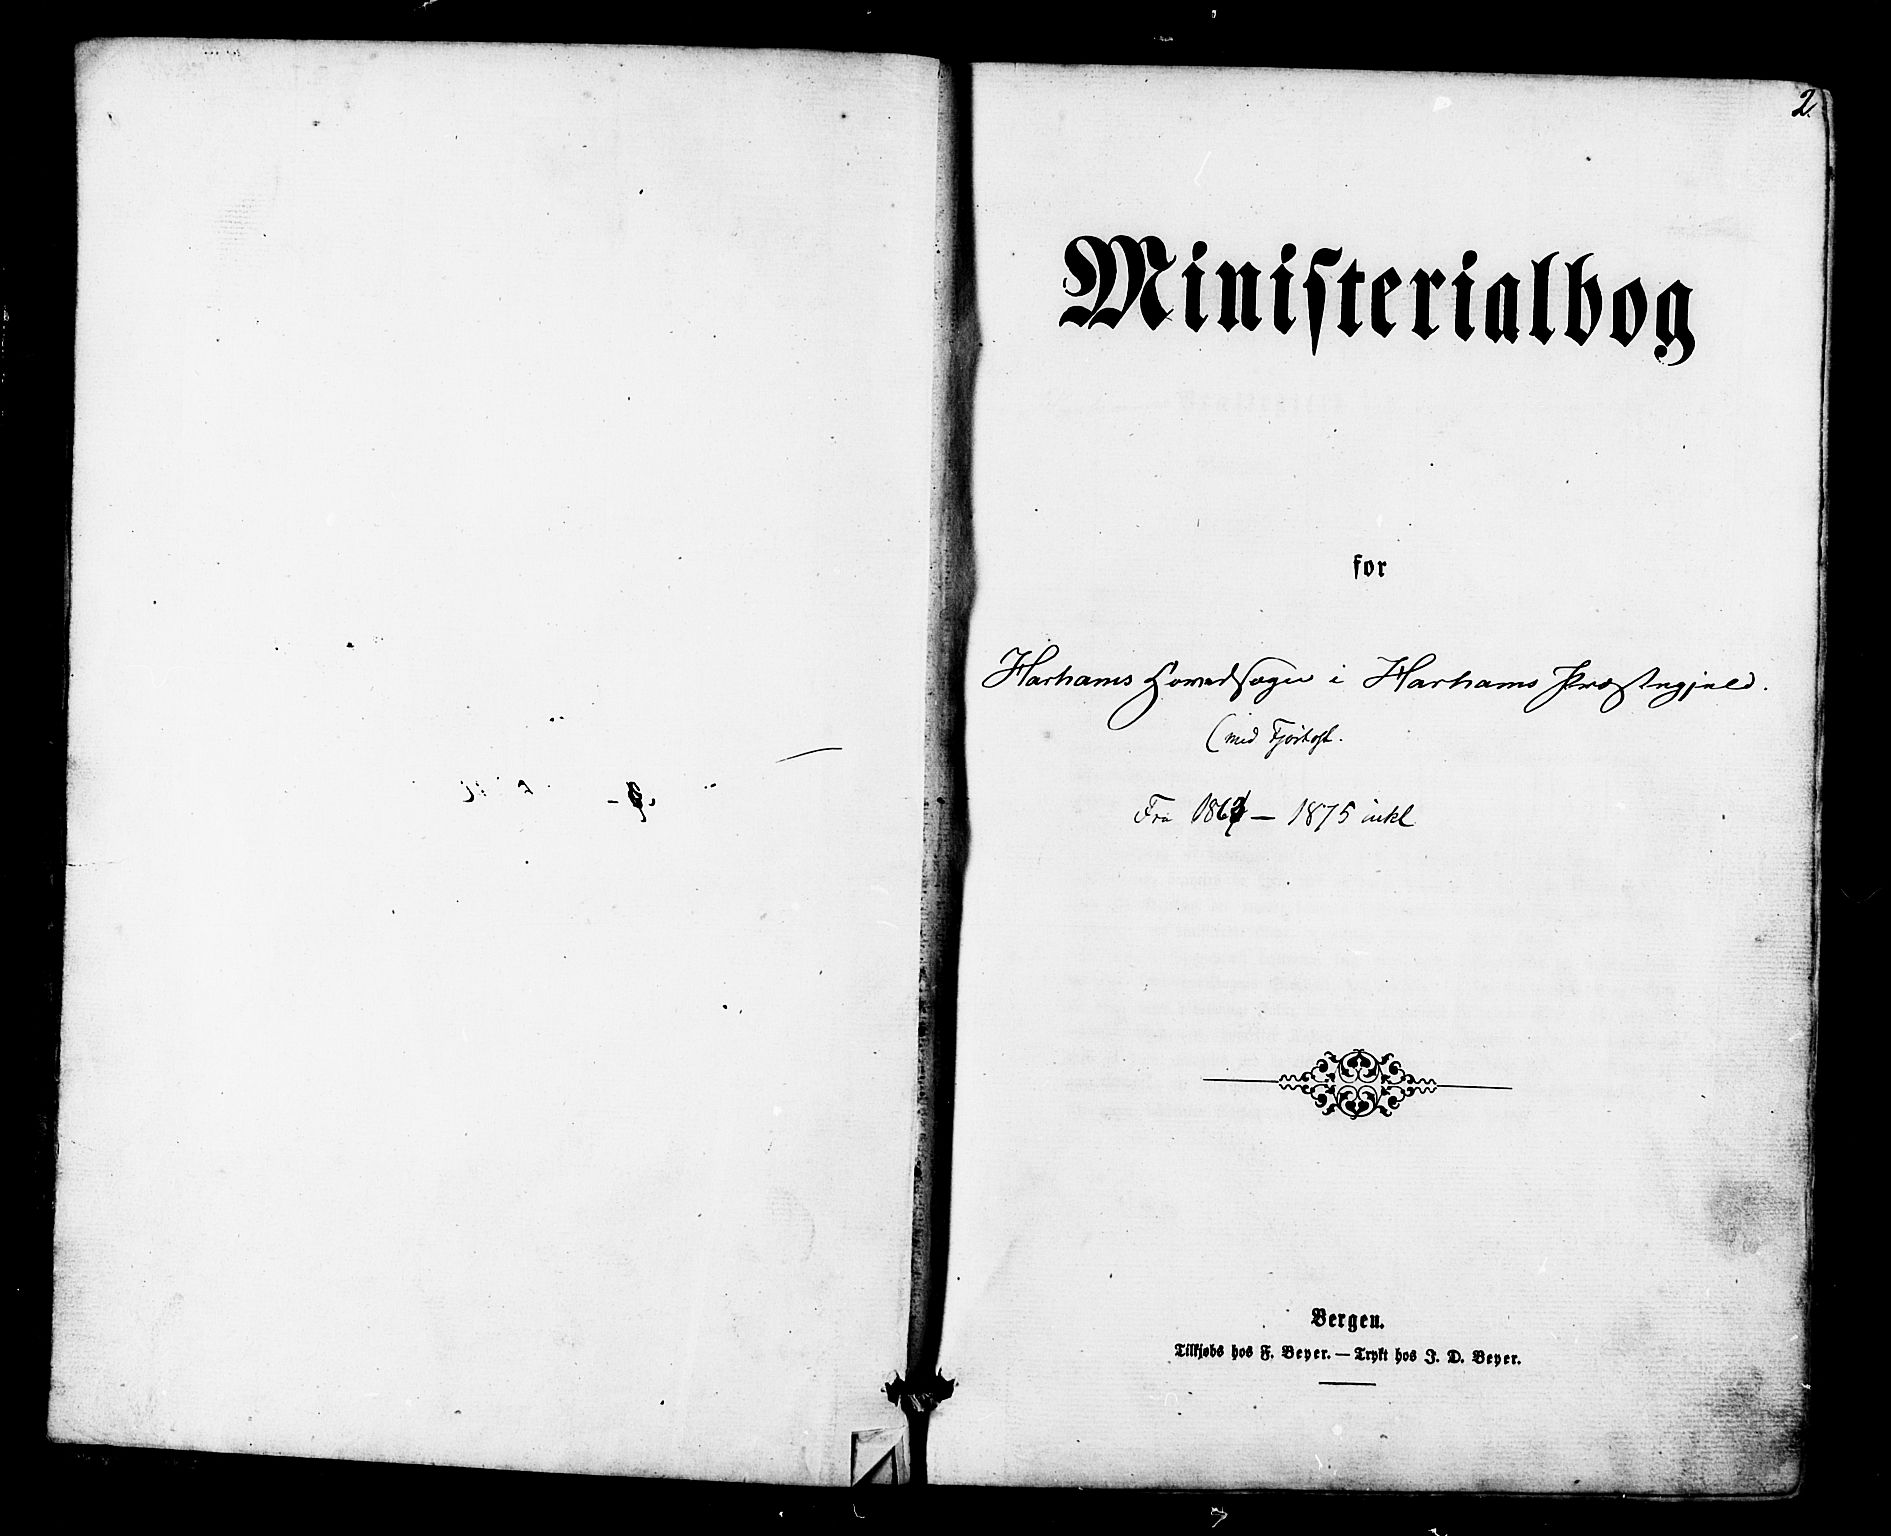 2.
Ministerialbog
for
Harhams Hovedsogn i Harhams Præstegjeld.
(med Fjørtoft.
Fra - 1875 inkl
Bergen.
Tilkjøbs hos F. Beyer. — Trykt hos J. D. Beyer.